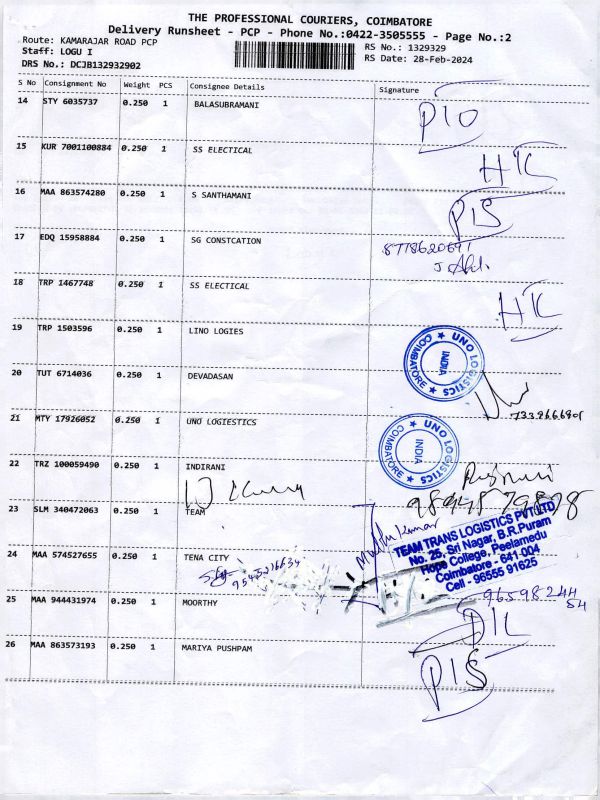 THE PROFESSIONAL COURIERS, COIMBATORE
Delivery Runsheet - PCP - Phone No.:0422-3505555 - Page No.:2
Route: KAMARAJAR ROAD PCP
Staff: LOGU I
DRS No.: DCJB132932902
RS No.: 1329329
RS Date: 28-Feb-2024
S No Consignment No Weight PCS Consignee Details Signature
14 STY 6035737 0.250 1 BALASUBRAMANI
15 KUR 7001100884 0.250 1 SS ELECTICAL
HK
16 MAA 863574280 0.250 1 S SANTHAMANI
PIS
17 EDQ 15958884 0.250 1 SG CONSTCATION
8778620691
18 TRP 1467748 0.250 1 SS ELECTICAL
HK
19 TRP 1503596 0.250 1 LINO LOGIES
UNO LOGISTICS
INDIA
COIMBATORE
20 TUT 6714036 0.250 1 DEVADASAN
21 MTY 17926052 0.250 1 UNO LOGIESTICS
UNO LOGISTICS
INDIA
COIMBATORE
22 TRZ 100059490 0.250 1 INDIRANI
23 SLM 340472063 0.250 1 TEAM
Muthu kumar
TEAM TRANS LOGISTICS PVT LTD
No. 25, Sri Nagar, B.R.Puram
Hope College, Peelamedu
Coimbatore - 641 004
Cell - 96555 91625
24 MAA 574527655 0.250 1 TENA CITY
25 MAA 944431974 0.250 1 MOORTHY
DIL
26 MAA 863573193 0.250 1 MARIYA PUSHPAM
PIS